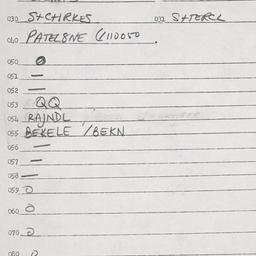 030 S+CHRKES 032 S+TERCL
040 PATEL8NE G110050 .
050 0
051 —
052 —
053 QQ
054 RAJNDL
055 BEKELE /BEKN
056 —
057 —
058 —
059 0
060 0
070
080